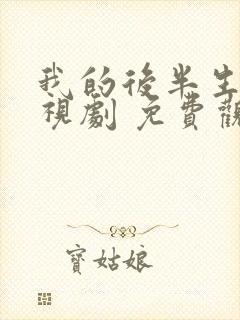 我的後半生
視劇 免費觀
寶姑娘